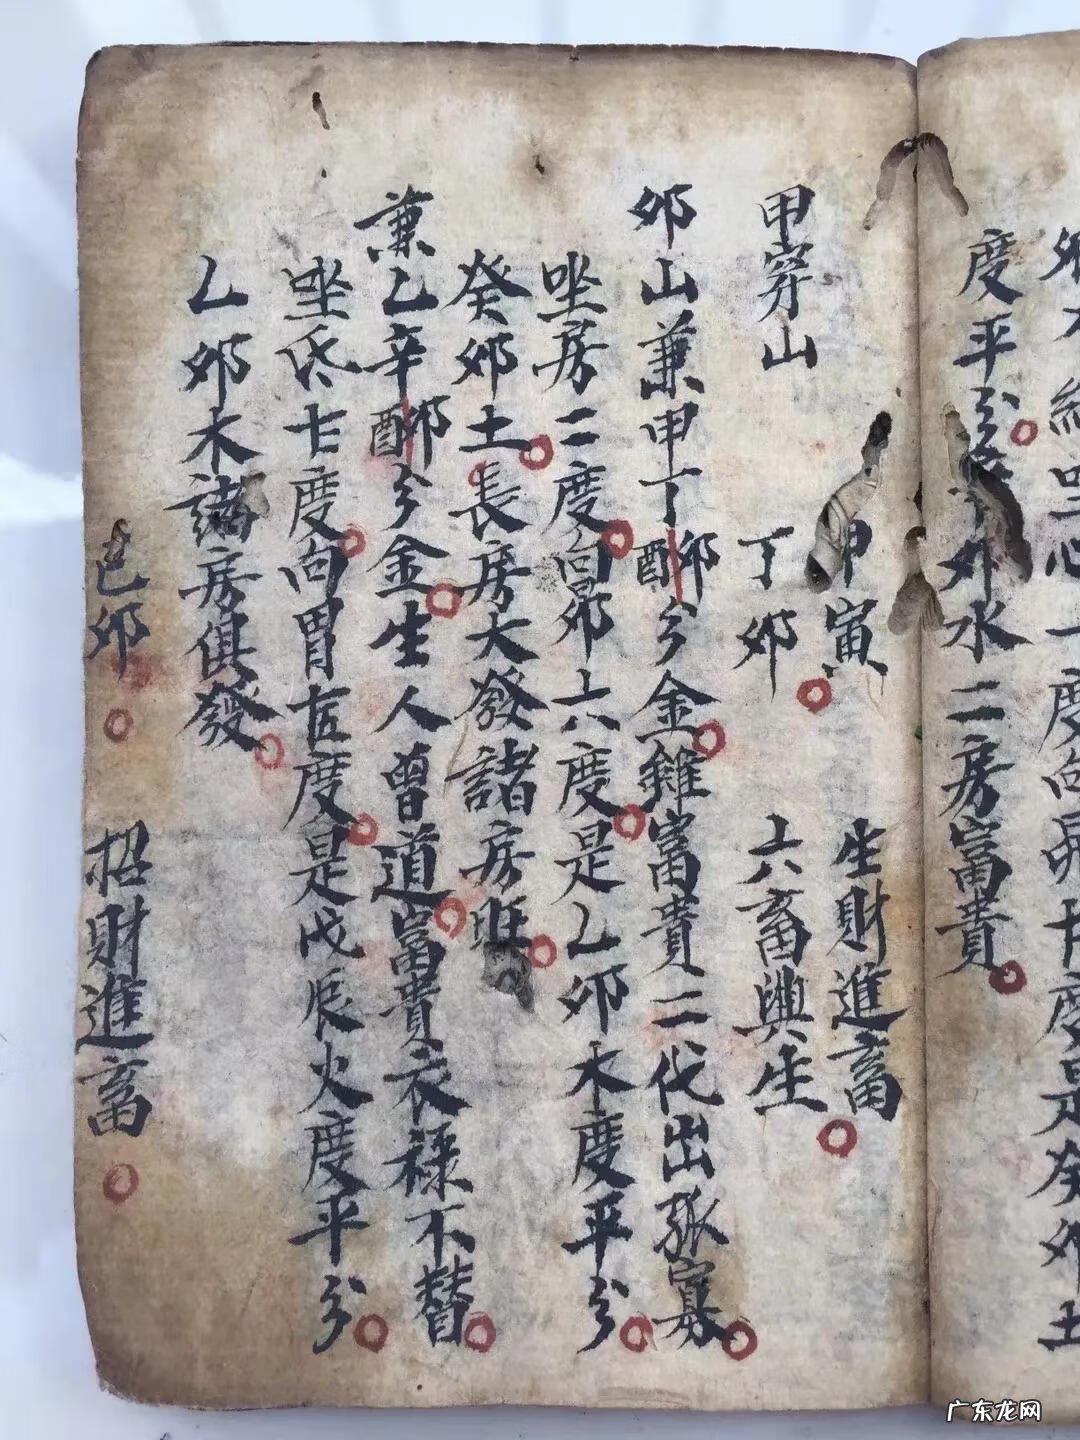 度平分 夘水二房富貴
甲寅 生財進畜
甲穿山 丁夘 六畜興生
夘山兼甲丁夘酉分金雞富貴二代出孤寡
坐房二度向昴六度是乙夘木度平分
癸夘土長房大發諸房旺
兼乙辛夘酉分金生人曾道富貴衣祿不替
坐氐 度向胃 度是戊辰火度平分
乙夘木諸房俱發
己夘 招財進畜
广东龙网